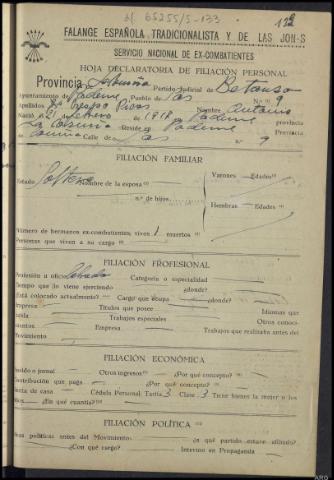 nº 65255/5-133
122
FALANGE ESPAÑOLA TRADICIONALISTA Y DE LAS JON-S
SERVICIO NACIONAL DE EX-COMBATIENTES
HOJA DECLARATORIA DE FILIACIÓN PERSONAL
Provincia Partido Judicial de Betanzos
Ayuntamiento de Paderne Pueblo de N.º 9
Apellidos Crespo Rivas Nombre Antonio
Nació 21 Febrero de en Paderne provincia
La Coruña Reside en Paderne Provincia
Coruña Calle de 9
FILIACIÓN FAMILIAR
Estado Soltero Nombre de la esposa Varones Edades
n.º de hijos
Hembras Edades
Número de hermanos ex-combatientes, viven 1 muertos
Personas que viven a su cargo
FILIACIÓN PROFESIONAL
Profesión u oficio Categoría o especialidad
Tiempo que lo viene ejerciendo ¿donde?
Está colocado actualmente? Cargo que ocupa ¿donde?
Empresa Títulos que posee Idiomas que
Trabajos especiales Otros conoci-
Empresa Trabajos que realizaba antes del
Movimiento
FILIACIÓN ECONÓMICA
Sueldo o jornal Otros ingresos ¿Por qué concepto?
Contribución que paga ¿Por qué concepto?
Renta de casa Cédula Personal Tarifa 3 Clase 3 Tiene bienes la mujer o los
¿En qué cuantía?
FILIACIÓN POLÍTICA
políticas antes del Movimiento ¿A qué partido estuvo afiliado?
¿Con qué cargo? Intervino en Propaganda